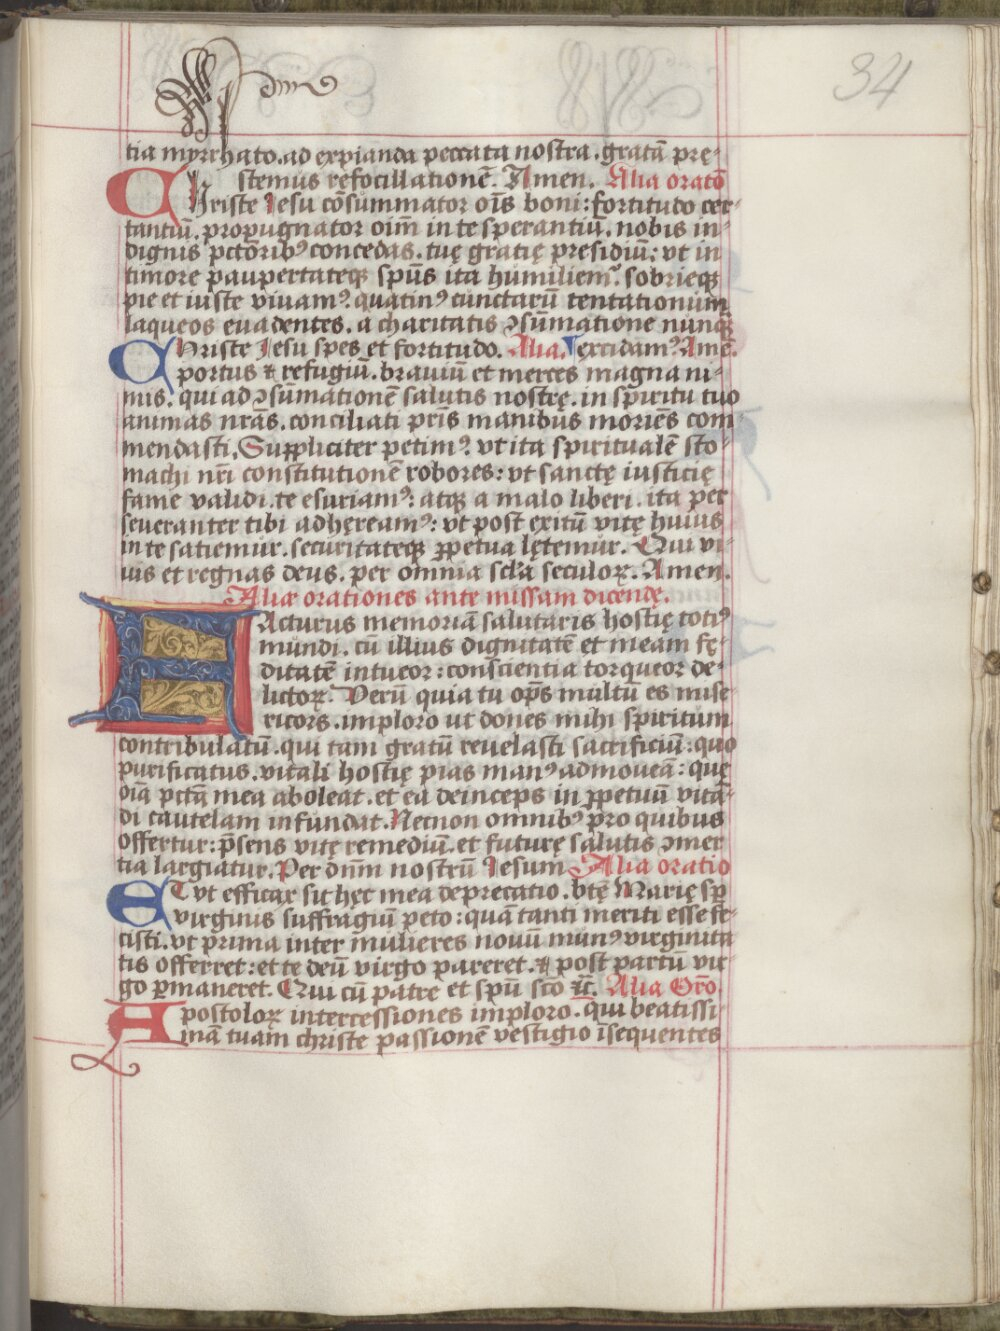 34
tia myrrhato. ad expianda peccata nostra. gratā prę-
stemus refocillationē. Amen. Alia oratō
CHriste Iesu cōsummator oīs boni: fortitudo cer-
tantiū. propugnator oīm in te sperantiū. nobis in-
dignis pctōribꝰ concedas. tuę gratię presidiū: vt in
timore paupertateqꝫ spūs ita humiliemꝰ. sobrieqꝫ
pie et iuste viuamꝰ. quatinꝰ cunctarū tentationum
laqueos euadentes. a charitatis ꝯsūmatione nunqꝫ
CHriste Iesu spes et fortitudo. Alia. excidamꝰ Amē.
portus & refugiū. brauiū et merces magna ni-
mis. qui ad ꝯsūmationē salutis nostrę. in spiritu tuo
animas nrās. conciliati prīs manibus moriēs com-
mendasti, Suppliciter petimꝰ. vt ita spiritualē sto-
machi nrī constitutionē robores: vt sanctę iusticię
fame validi. te esuriamꝰ: atqꝫ a malo liberi. ita per
seueranter tibi adhęreamꝰ: vt post exitū vitę huius
in te satiemur. securitateqꝫ ꝑpetua lętemur. Qui vi-
uis et regnas deus. per omnia scl̄a seculoꝝ. Amen.
Aliæ orationes ante missam dicendę.
FActurus memoriam salutaris hostię totiꝰ
mundi. cū illius dignitatē et meam fę-
ditatē intueor: conscientia torqueor de-
lictoꝝ. Verū quia tu opīs multū es mise-
ricors. imploro ut dones mihi spiritum
contribulatū. qui tam gratū reuelasti sacrificiū: quo
purificatus. vitali hostię pias manꝰ admoueā: quę
oīa pctā mea aboleat. et ea deinceps in ꝑpetuū vitā-
di cautelam infundat. Necnon omnibꝰ pro quibus
offertur: p̄sens vitę remediū. et futurę salutis ꝯmer
tia largiatur. Per dnm̄ nostrū Iesum Alia oratio
ET vt efficax sit hęc mea deprecatio. btę Marię sp̄
virginis suffragiū peto: quā tanti meriti esse fe-
cisti. vt prima inter mulieres nouū munꝰ virginita
tis offerret: et te deū virgo pareret. & post partū vir-
go ꝑmaneret. Qui cū patre et spū scō ꝛc̄. Alia Orō.
Apostoloꝝ intercessiones imploro. qui beatissi-
mā tuam christe passionē vestigio īsequentes